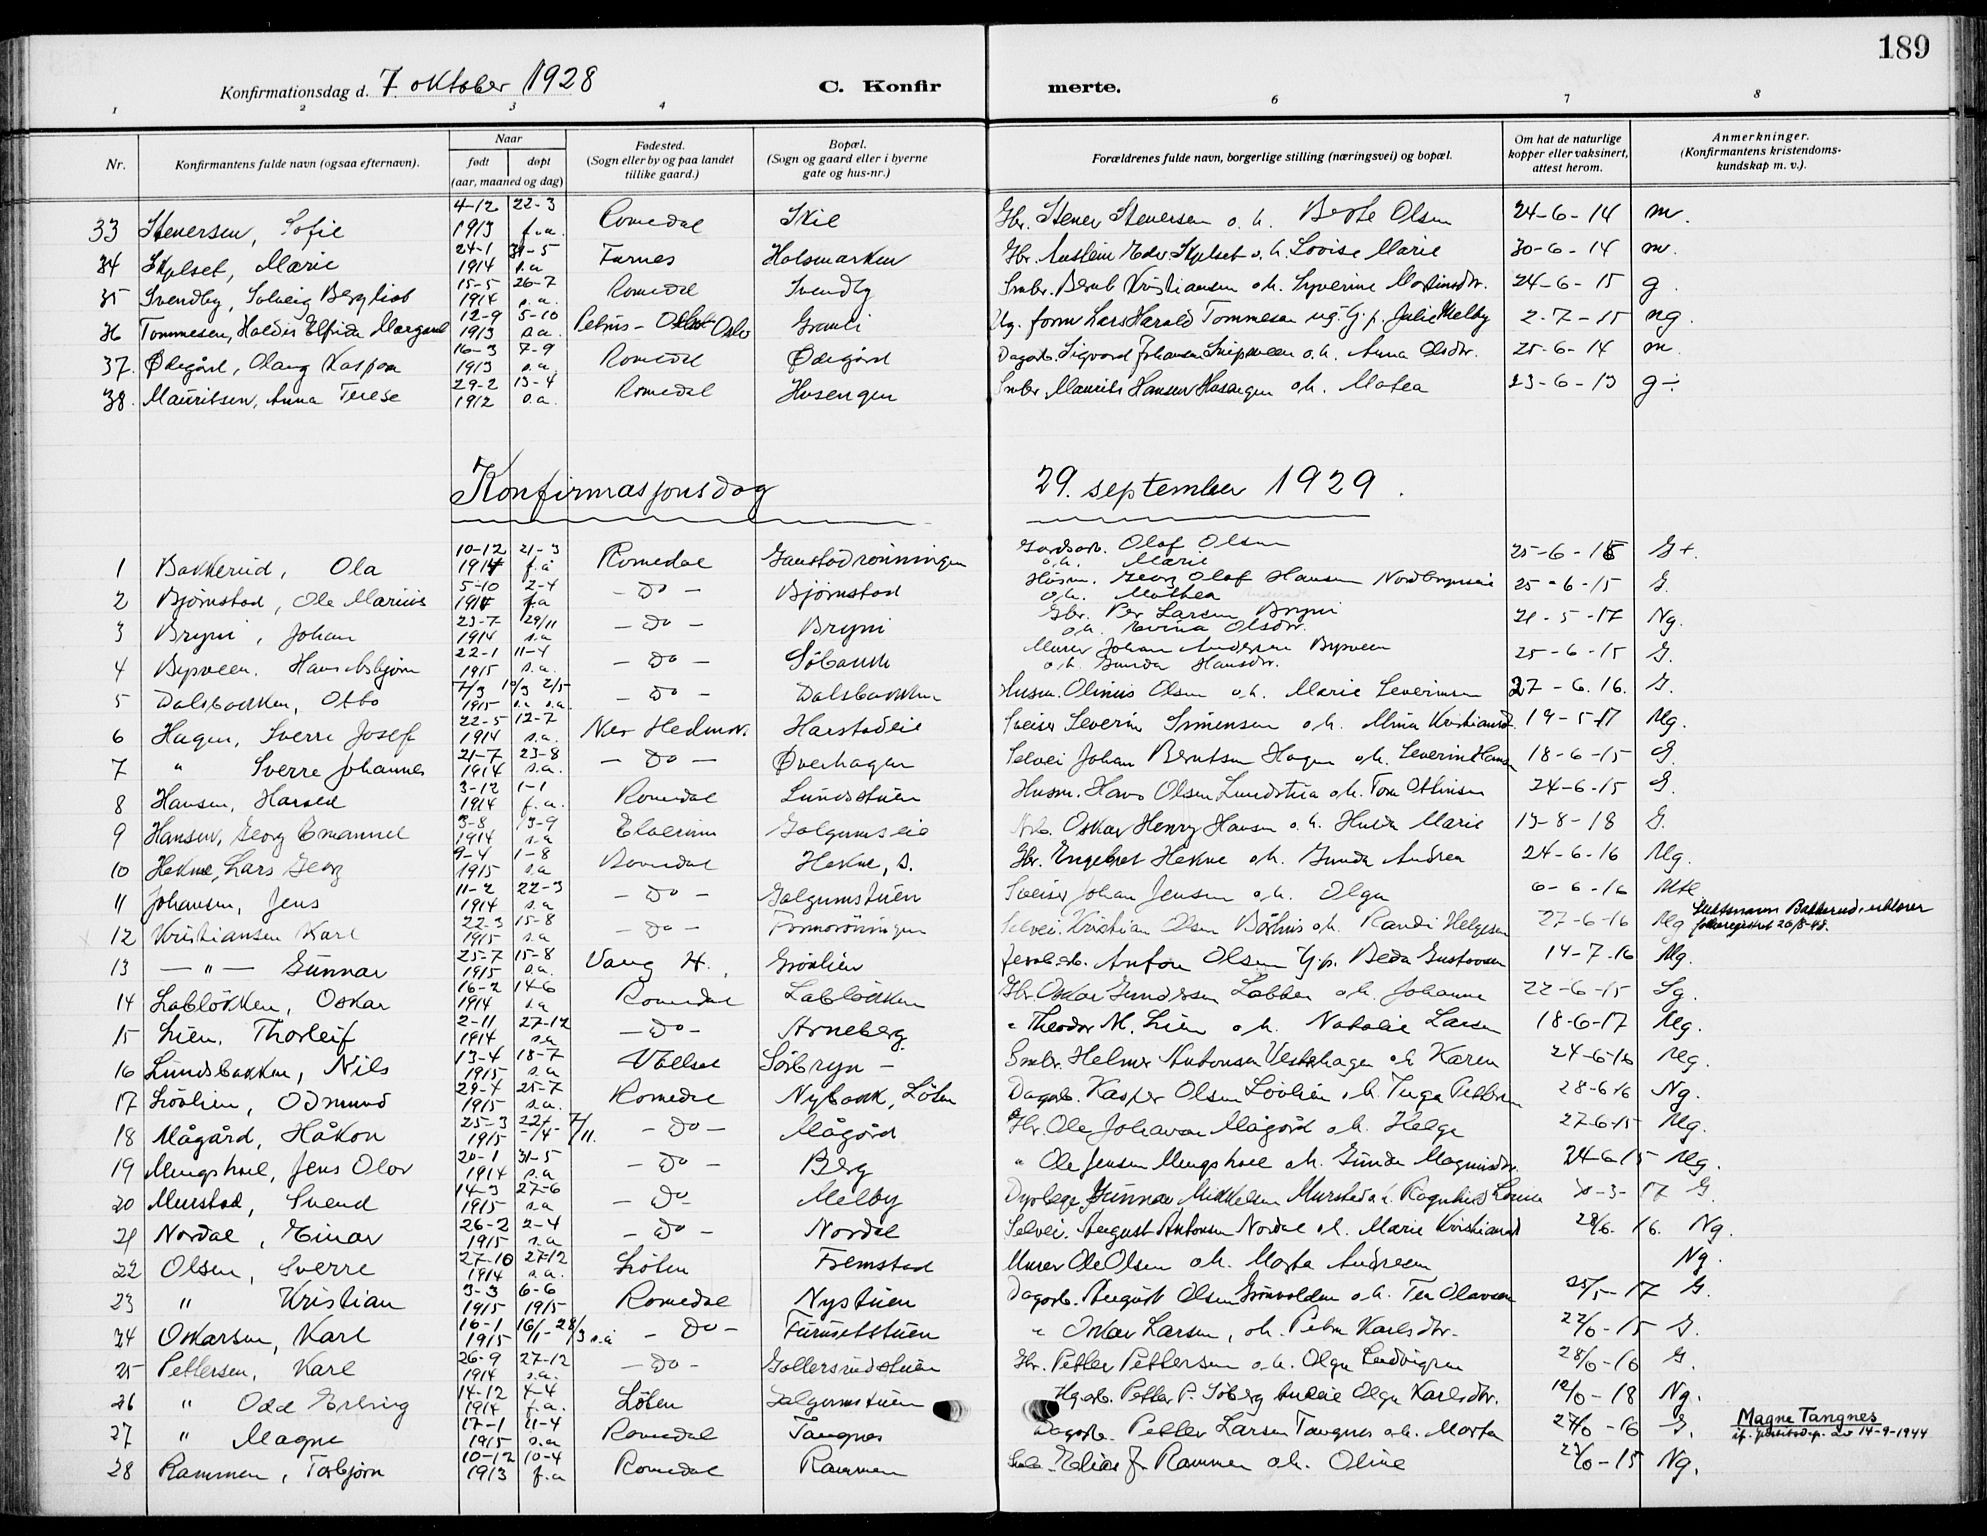 189
Konfirmationsdag d. 7. oktober 1928 C. Konfirmerte.
1 2 3 4 6 7 8
Nr. Konfirmantens fulde navn (ogsaa efternavn). Naar født døpt (aar, maaned og dag) Fødested. (Sogn eller by og paa landet tillike gaard.) Bopæl. (Sogn og gaard eller i byerne gate og hus-nr.) Forældrenes fulde navn, borgerlige stilling (næringsvei) og bopæl. Om hat de naturlige kopper eller vaksinert, attest herom. Anmerkninger. (Konfirmantens kristendoms-kundskap m. v.).
33 Stenersen, Sofie 4-12 1913 22-3 f.a. Romedal Skil Gbr. Stener Stenersen o. h. Berte Olsen 24-6-14 m.
34 Skjelset, Marie 24-1 1914 31-5 s.a. Furnes Holsmarken Gbr. Edv. Skjelset o. h. Lovise Marie 30-6-14 m.
35 Svendby, Solveig Bergliot 15-5 1914 26-7 s.a. Romedal Svendby Smbr. Bernt Kristiansen o.h. Syverine Martinsdr. 24-6-15 g.
36 Tommesen, Haldis Elfrida Margaret 12-9 1913 5-10 s.a. Petrus - Oslo Ug. form Lars Harald Tommesen ug. Gp. Julie Melby 2-7-15 ng.
37. Ødegård, Olaug Kaspara 16-3 1913 7-9 s.a. Romedal Ødegård Dagarb. Sigvard Johansen o.h. Anna Olsdr. 25-6-14 m.
38. Mauritsen, Anna Terese 29-2 1912 13-4 s.a. Romedal Husengen Smbr. Maurits Hansen Husengen o.h. Matea 23-6-13 g÷
Konfirmasjonsdag 29. september 1929.
1 Bakkerud, Ola 10-12 1914 21-3 f.a Romedal Gaustadrønningen Gardsarb. Olaf Olsen o.h. Marie 25-6-15 G+.
2 Bjørnstad, Ole Marius 5-10 1914 2-4 f.a - Do - Bjørnstad Husm. Georg Olaf Hansen o.h. Mathea 25-6-15 G.
3 Bryni, Johan 23-7 1914 29/11 s.a. - Do - Bryni Gbr. Per Larsen Bryni o.h. Evina Olsdr. 21-5-17 Ng.
4 Bypveen, Hans Asbjørn 22-1 1915 11-4 s.a. - Do - Søbakk Murer Johan Andersen Bypveen o.h. Gunda Hansdr. 25-6-15 G.
5 Dalsbakken, Otto 7/3 1915 10/3 s.a 2/5 s.a. - Do - Dalsbakken Husm. Olinius Olsen o.h. Marie Severinsen 27-6.16. G.
6 Hagen, Sverre Josef 22-5 1914 12-7 s.a. Nes Hedmark. Harstadeie Sveiser Severin Simensen o.h. Alma Kristiansd. 19-5-17 Mg.
7 " Sverre Johannes 21-7 1914 23-8 s.a. - Do - Øverhagen Selvei Johan Berntsen Hagen o.h. Severine Hansen 18-6-15 G.
8 Hansen, Harald 3-12 1914 1-1 f.a. Romedal Lundsstuen Husm. Hans Olsen Lundstua o.h. Tora Ottinsen 24-6-15 G.
9 Hansen, Georg Emanuel 3-8 1914 13-9 s.a Elverum Galgumseie Oskar Henry Hansen o.h. Hulda Marie 13-8-18 G.
10 Hekne, Lars Georg 9-4 1915 1-8 s.a Romedal Hekne, S. Gbr. Engebret Hekne o.h. Gunda Andrea 24-6-16 Mg.
11 Johansen, Jens 11-2 1914 22-3 s.a - Do - Galgumstuen Sveiser Johan Jensen o.h. Olga 6-6-16 Mtl
12 Kristiansen Karl 22-3 1915 15-8 s.a - Do - Formorøningen Selvei. Kristian Olsen o.h. Randi Helgesen 27-6-16 Mg Slektsnavn Bakkerud, folkeregistret 20/8-48.
13 - " - Gunnar 25-7 1915 15-8 s.a. Vang H. Grønlien Anton Olsen Gp. Beda Gustavsen 14-7-16 Mg.
14 Labløkken, Oskar 16-2 1914 14-6 s.a Romedal Labløkken Gbr. Oskar Gundersen Labben o.h. Johanne 22-6-15 Sg.
15 Lien, Thorleif 2-11 1914 27-12 s.a - Do - Arneberg " Theodor M. Lien o.h. Natalie Larsen 18-6-17 Mg.
16 Lundsbakken, Nils 13-4 1915 18-7 s.a. Vallset Sørbryn - Smbr. Helmer Antonsen Vestehagen o.h. Karen 24-6-16 Mg.
17 Løvlien, Odmund 29-4 1915 25-7 s.a. Romedal Nybakk, Løten Dagarb. Kasper Olsen Løvlien o.h. Inga Pettersen 28-6-16 Ng.
18 Mågård, Håkon 25-3 1915 22/4 - 7/11. - Do - Mågård Gbr. Ole Johansen Mågård o.h. Helga 27-6-15 Mg.
19 Mengshoel, Jens Olav 20-1 1914 31-5 s.a - Do - Berg " Ole Jensen Mengshoel o.h. Gunda Magnusdr. 24-6-15 Mg.
20 Murstad, Svend 14-3 1915 27-6 s.a - Do - Melby Dyrlege Gunnar Mikkelsen Murstad o.h. Ragnhild Louise 20-3-17 G.
21 Nordal, Einar 26-2 1915 2-4 s.a - Do - Nordal Selvei. August Antonsen Nordal o.h. Marie Kristiansd 28/6. 16. Ng.
22 Olsen, Sverre 27-10 1914 27-12 s.a. Løten Fremstad Murer Ole Olsen o.h. Marta Andresen Ng.
23 " Kristian 3-3 1915 6-6 1915 Romedal Nystuen Dagarb. August Olsen Grønvolden o.h. Tea Olavsen 25/5-17 G.
24 Oskarsen, Karl 16-1 1915 16/1- 28/3 s.a - Do - Furusetstuen " Oskar Larsen, o.h. Petra Karlsdtr. 22/6-15 G.
25 Pettersen, Karl 26-9 1914 27-12 s.a. - Do - Gollersrudstuen Gbr. Petter Pettersen o.h. Olga Ludvigsen 28/6-16 G.
26 " Odd Erling 14-12 1914 4-4 f.a. Løten Galgumstuen Petter P. Søberg Olga Karlsdtr. 12/6-18 Ng.
27 " Magne 17-1 1915 11-4 s.a Romedal Tangnes Dagarb. Petter Larsen Tangnes o.h. Marta 27/6-16 G. Magne Tangnes if. 14-9-1944
28 Rammen, Torbjørn 10-12 1913 10-4 f.a Romedal Rammen Elias J. Rammen o.h. Oline 27/6-15 Ng.